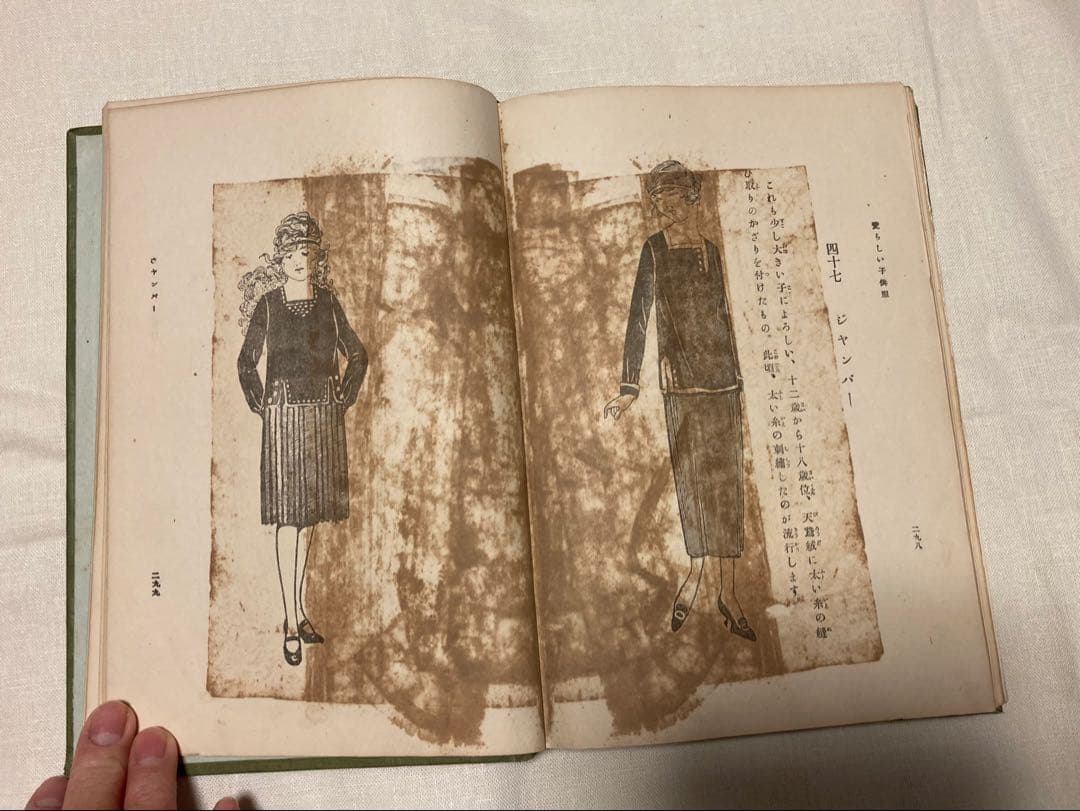 愛らしい子供服
四十七　ジャンパー
これも少し大きい子によろしい、十二歳から十八歳位、天鵞絨に太い糸の縫
ひ取りのかざりを付けたもの。此頃、太い糸の刺繡したのが流行します
二九八
ジャンパー
二九九